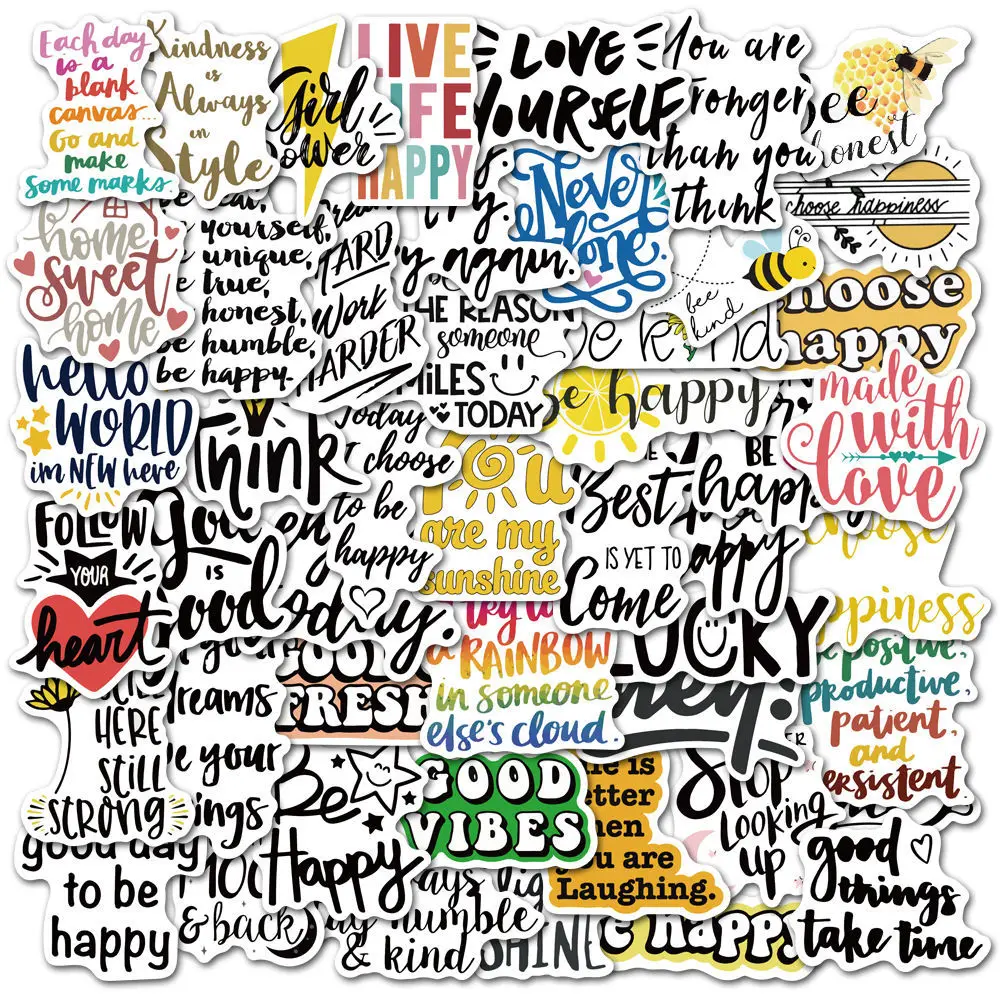 Each day
is a
blank
canvas...
Go and
make
some marks.
Kindness
is
Always
in
Style
Girl
Power
LIVE
LIFE
HAPPY
LOVE
YOURSELF
You are
ronger
than you
think
Bee
honest
choose happiness
home
sweet
home
yourself,
unique,
true,
honest,
be humble,
be happy.
HARD
WORK
HARDER
try.
try again.
Never
alone
bee
kind
THE REASON
someone
SMILES
TODAY
be kind
choose
happy
hello
WORLD
im NEW here
Think
Today
I choose
to be
happy
be happy
You
are my
sunshine
THE
Best
IS YET TO
Come
BE
happy
made
with
love
FOLLOW
YOUR
heart
IS
Good
today.
happy
choose
happiness
try to
a RAINBOW
in someone
else's cloud.
LUCKY
be positive,
productive,
patient,
and
persistent.
STILL
HERE
STILL
STRONG
dreams
your
FRESH
Be
Happy
GOOD
VIBES
is
better
when
you are
Laughing.
STOP
LOOKING
UP
good
things
take time
good day
to be
happy
& back
humble
& kind
SHINE
happy